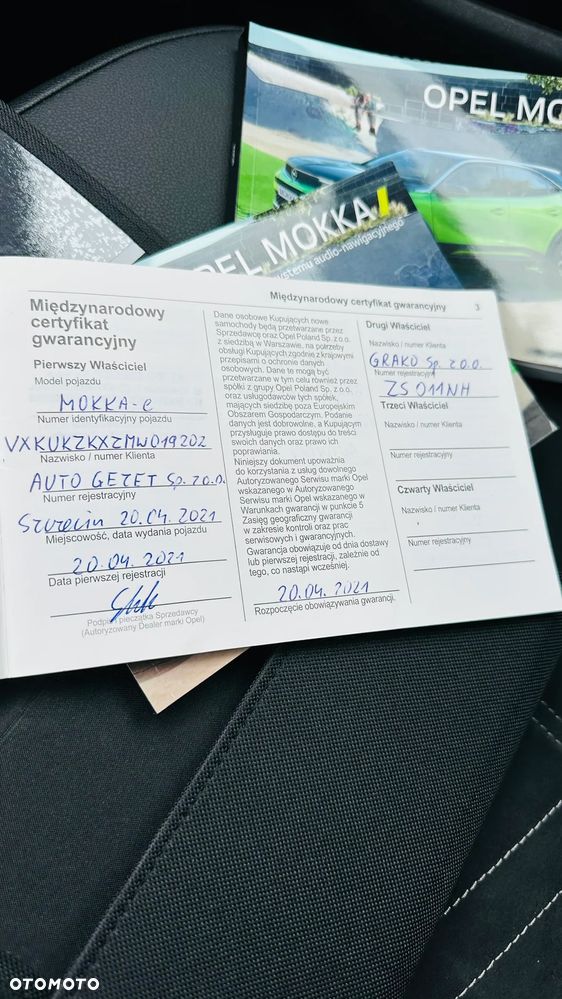 OPEL MO
OPEL MOKKA
systemu audio-nawigacyjnego
Międzynarodowy certyfikat gwarancyjny 3
Międzynarodowy
certyfikat
gwarancyjny
Pierwszy Właściciel
Model pojazdu
MOKKA-e
Numer identyfikacyjny pojazdu
VXKUKZKXZMW019202
Nazwisko / numer Klienta
AUTO GEZET Sp. z o.o.
Numer rejestracyjny
Szczecin 20.04.2021
Miejscowość, data wydania pojazdu
20.04.2021
Data pierwszej rejestracji
Podpis i pieczątka Sprzedawcy
(Autoryzowany Dealer marki Opel)
Dane osobowe Kupujących nowe
samochody będą przetwarzane przez
Sprzedawcę oraz Opel Poland Sp. z o.o.
z siedzibą w Warszawie, na potrzeby
obsługi Kupujących zgodnie z krajowymi
przepisami o ochronie danych
osobowych. Dane te mogą być
przetwarzane w tym celu również przez
spółki z grupy Opel Poland Sp. z o.o.
oraz usługodawców tych spółek,
mających siedzibę poza Europejskim
Obszarem Gospodarczym. Podanie
danych jest dobrowolne, a Kupującym
przysługuje prawo dostępu do treści
swoich danych oraz prawo ich
poprawiania.
Niniejszy dokument upoważnia
do korzystania z usług dowolnego
Autoryzowanego Serwisu marki Opel
wskazanego w Autoryzowanym
Serwisu marki Opel wskazanego w
Warunkach gwarancji w punkcie 5
Zasięg geograficzny gwarancji
w zakresie kontroli oraz prac
serwisowych i gwarancyjnych.
Gwarancja obowiązuje od dnia dostawy
lub pierwszej rejestracji, zależnie od
tego, co nastąpi wcześniej.
20.04.2021
Rozpoczęcie obowiązywania gwarancji.
Drugi Właściciel
Nazwisko / numer Klienta
GRAKO Sp. z o.o.
Numer rejestracyjny
ZS 011NH
Trzeci Właściciel
Nazwisko / numer Klienta
Numer rejestracyjny
Czwarty Właściciel
Nazwisko / numer Klienta
Numer rejestracyjny
OTOMOTO